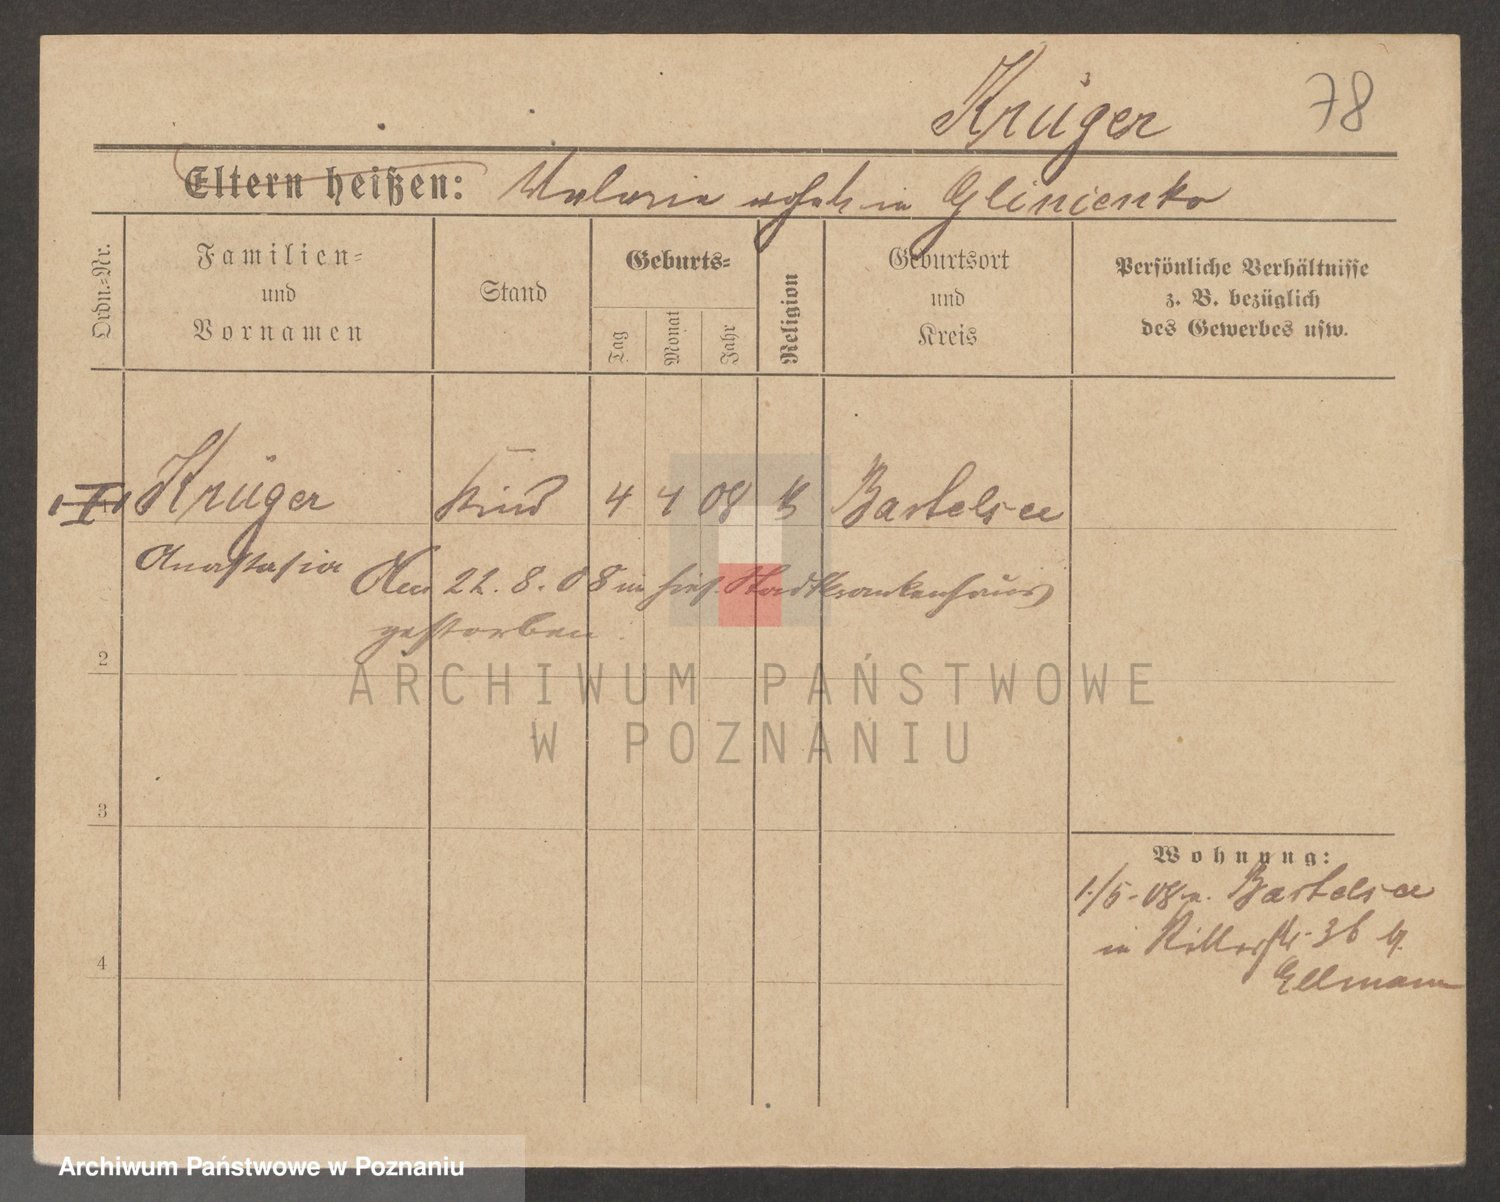 Krüger
78
Eltern heißen: Valeria wohnh in Glinienko
Ordn.-Nr.
Familien-
und
Vornamen
Stand
Geburts-
Tag
Monat
Jahr
Religion
Geburtsort
und
Kreis
Persönliche Verhältnisse
z. B. bezüglich
des Gewerbes usw.
Krüger Kind 4 4 08 k Bartelsee
Anastasia Am 22. 8. 08 im hies. Stadtkrankenhaus
gestorben.
2
3
4
Wohnung:
1./5. 08 v. Bartelsee
in Ritterstr. 36
Ellmann
ARCHIWUM PAŃSTWOWE
W POZNANIU
Archiwum Państwowe w Poznaniu